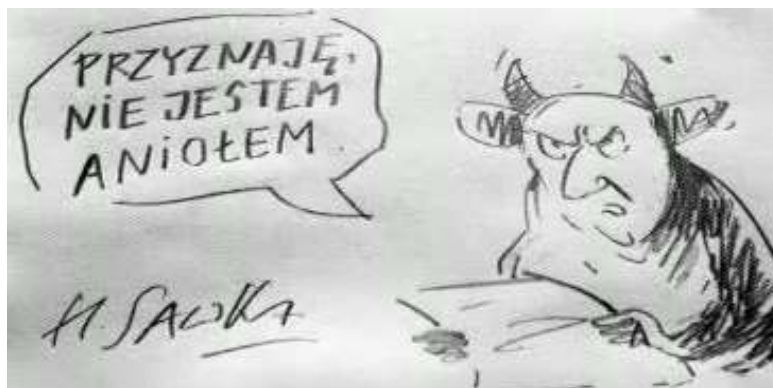 PRZYZNAJĘ,
NIE JESTEM
ANIOŁEM
H. SAWKA